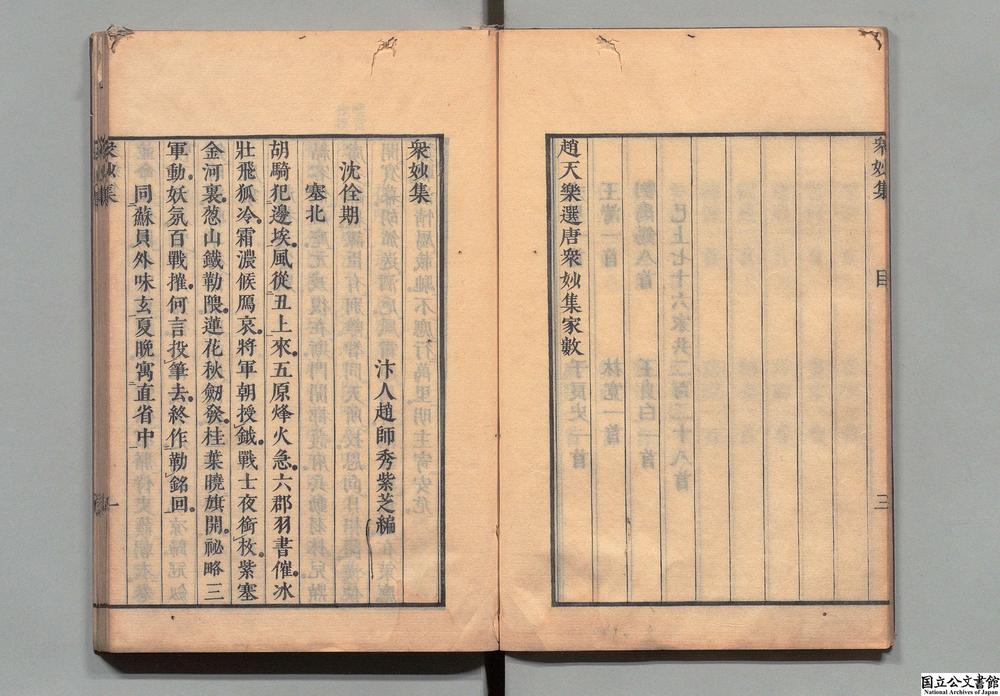 衆妙集 目 三
趙天樂選唐衆妙集家數
衆妙集
汴人趙師秀紫芝編
沈佺期
塞北
胡騎犯邊埃風從丑上來五原烽火急六郡羽書催冰
壯飛狐冷霜濃候鴈哀將軍朝授鉞戰士夜銜枚紫塞
金河裏葱山鐵勒隈蓮花秋劒發桂葉曉旗開祕略三
軍動妖氛百戰摧何言投筆去終作勒銘回
同蘇員外味玄夏晚寓直省中
衆妙集 一
国立公文書館
National Archives of Japan